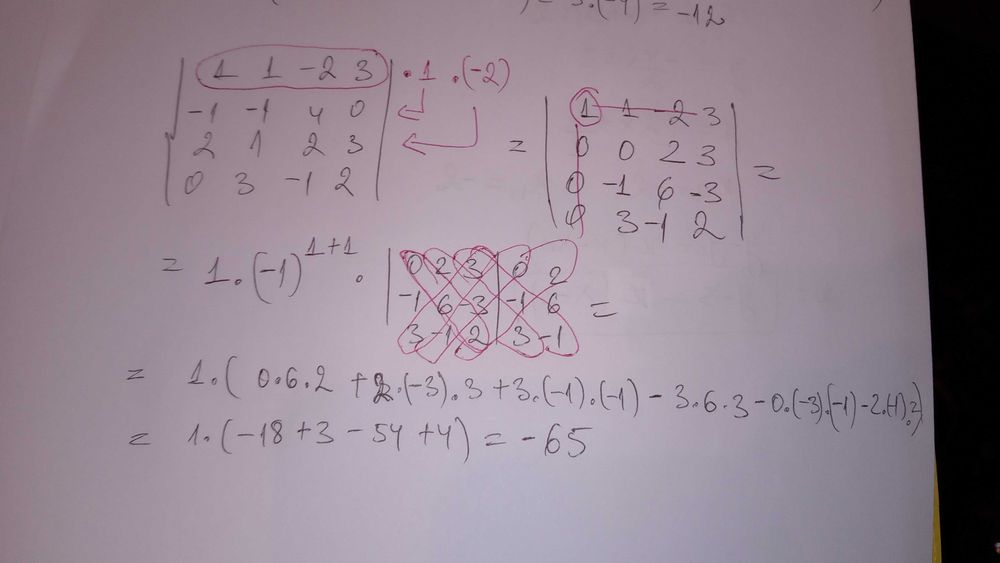 ) = 3.(-4) = -12
| 1 1 -2 3 | . 1 . (-2)
| -1 -1 4 0 |
| 2 1 2 3 |
| 0 3 -1 2 |
= | 1 1 -2 3 | =
| 0 0 2 3 |
| 0 -1 6 -3 |
| 0 3 -1 2 |
= 1.(-1)^{1+1} . | 0 2 3 | 0 2 =
| -1 6 -3 | -1 6
| 3 -1 2 | 3 -1
= 1.( 0.6.2 + 2.(-3).3 + 3.(-1).(-1) - 3.6.3 - 0.(-3).(-1) - 2.(-1).2)
= 1.(-18 + 3 - 54 + 4) = -65